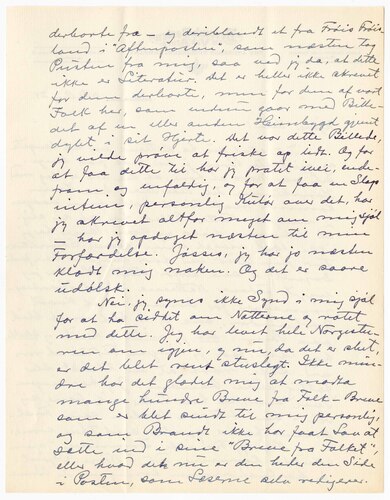 derborte fra – og deriblandt et fra Frøis Frøis
land i "Aftenposten", som næsten tog
Pusten fra mig, saa ved jeg da, at dette
ikke er Literatur. det er heller ikke skrevet
for dem derborte, men for dem af vort
Folk her, som endnu gaar med Bille-
det af en eller anden Heimbygd gjemt
dybt i sit Hjerte. Det var dette Billede,
jeg vilde prøve at friske op lidt. Og for
at faa dette til har jeg pratet ivei, ende-
fram og enfoldig, og for at faa en Slags
intim, personlig Kulør over det, har
jeg skrevet altfor meget om mig sjøl
– har jeg opdaget næsten til min
Forfærdelse. Jøsses, jeg har jo næsten
klædt mig naken. Og det er saare
udølsk.
Nei, jeg synes ikke Synd i mig sjøl
for at ha siddet om Nætterne og
med dette. Jeg har levet hele Norgestu-
ren om igjen, og nu, da det er slut,
er det blet rent stusslegt. Ikke min-
dre har det glædet mig at modta
mange hundre Breve fra Folk – Breve
som er blet sendt til mig personlig,
og som Brandt ikke har faat Lov at
putte ind i sine "Breve fra Folket",
eller hvad det nu er den heder den Side
i Posten, som Læserne selv redigerer.